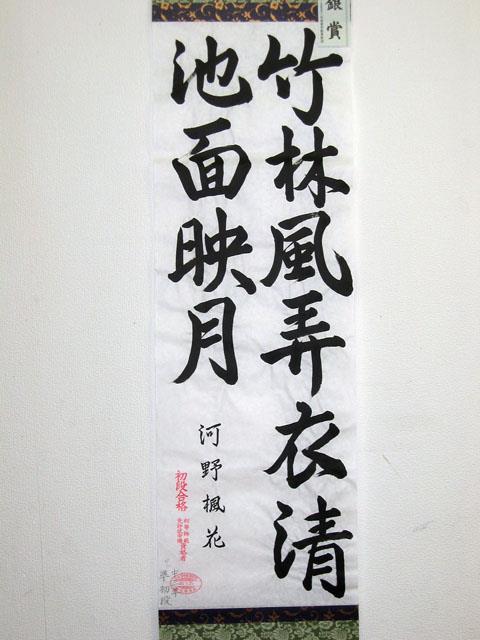 銀賞
竹林風弄衣清
池面映月
河野楓花
初段合格
準初段